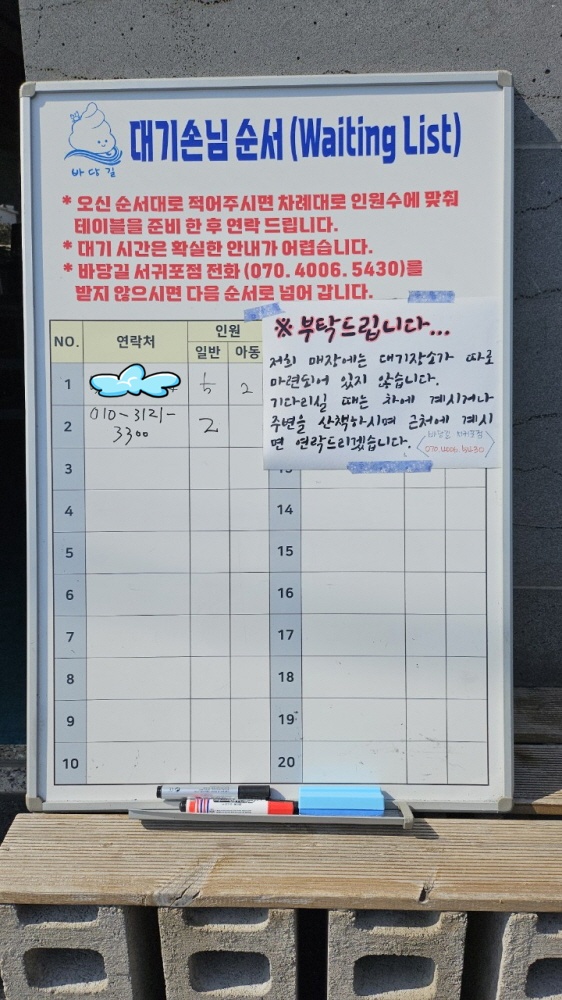 바당길
대기손님 순서 (Waiting List)
* 오신 순서대로 적어주시면 차례대로 인원수에 맞춰
테이블을 준비 한 후 연락 드립니다.
* 대기 시간은 확실한 안내가 어렵습니다.
* 바당길 서귀포점 전화 (070. 4006. 5430)를
받지 않으시면 다음 순서로 넘어 갑니다.
※ 부탁드립니다...
저희 매장에는 대기장소가 따로
마련되어 있지 않습니다.
기다리실 때는 차에 계시거나
주변을 산책하시며 근처에 계시
면 연락드리겠습니다.
바당길 서귀포점
070.4006.5430
NO. 연락처 인원
일반 아동
1 5 2
2 010-3121-
3300 2
3
4 14
5 15
6 16
7 17
8 18
9 19
10 20